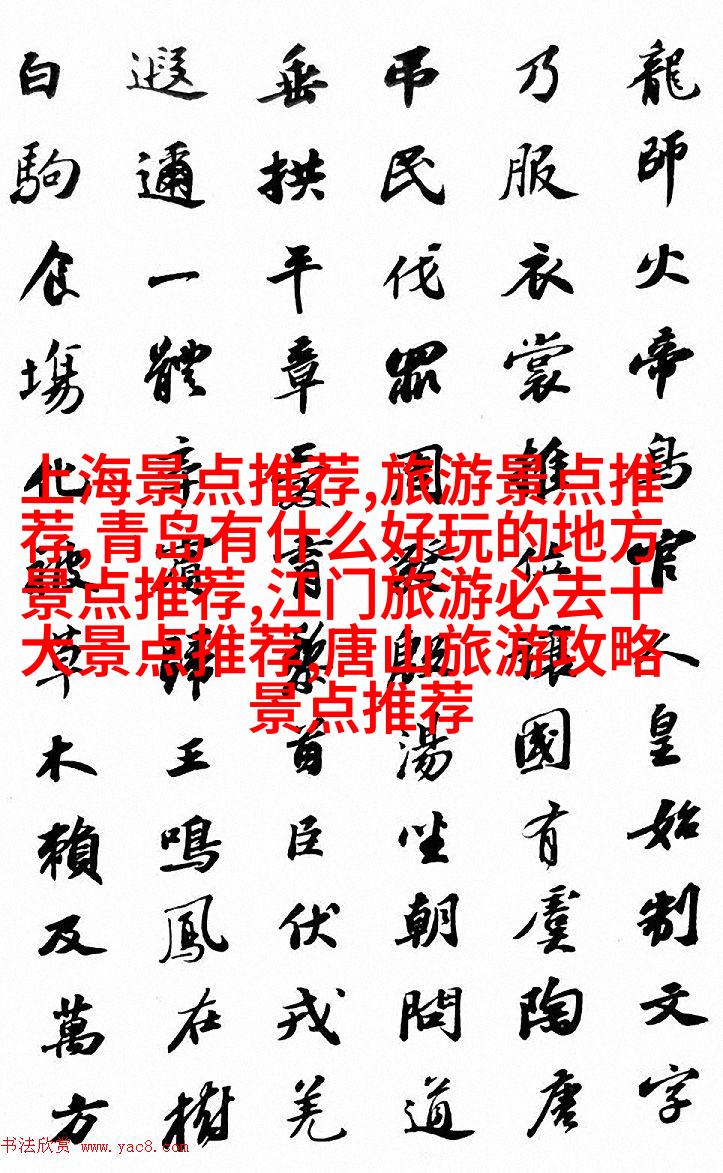 龍師火帝鳥官人皇始制文字
乃服衣裳推位讓國有虞陶唐
吊民伐罪周發殷湯坐朝問道
垂拱平章愛育黎首臣伏戎羌
遐邇一體率賓歸王鳴鳳在樹
白駒食場化被草木賴及萬方
上海景点推荐,旅游景点推
荐,青岛有什么好玩的地方
景点推荐,江门旅游必去十
大景点推荐,唐山旅游攻略
景点推荐
书法欣赏 www.yac8.com